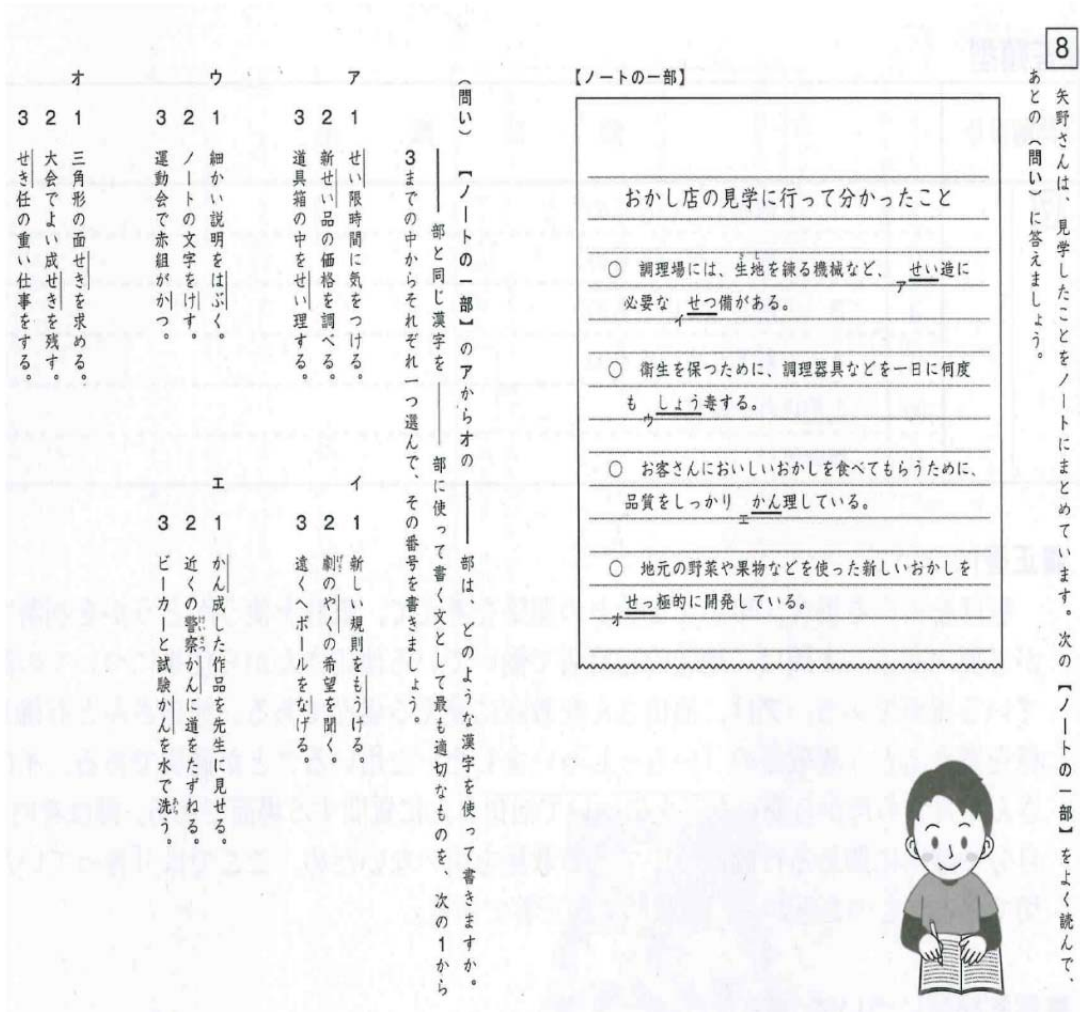 8
矢野さんは、見学したことをノートにまとめています。次の【ノートの一部】をよく読んで、
あとの（問い）に答えましょう。
【ノートの一部】
おかし店の見学に行って分かったこと
○ 調理場には、生地を練る機械など、せい造に
ア
必要なせつ備がある。
イ
○ 衛生を保つために、調理器具などを一日に何度
もしょう毒する。
ウ
○ お客さんにおいしいおかしを食べてもらうために、
品質をしっかりかん理している。
エ
○ 地元の野菜や果物などを使った新しいおかしを
せっ極的に開発している。
オ
（問い）【ノートの一部】のアからオの――部は、どのような漢字を使って書きますか。
――部と同じ漢字を――部に使って書く文として最も適切なものを、次の1から
3までの中からそれぞれ一つ選んで、その番号を書きましょう。
ア 1 せい限時間に気をつける。
2 新せい品の価格を調べる。
3 道具箱の中をせい理する。
イ 1 新しい規則をもうける。
2 劇のやくの希望を聞く。
3 遠くへボールをなげる。
ウ 1 細かい説明をはぶく。
2 ノートの文字をけす。
3 運動会で赤組がかつ。
エ 1 かん成した作品を先生に見せる。
2 近くの警察かんに道をたずねる。
3 ビーカーと試験かんを水で洗う。
オ 1 三角形の面せきを求める。
2 大会でよい成せきを残す。
3 せき任の重い仕事をする。